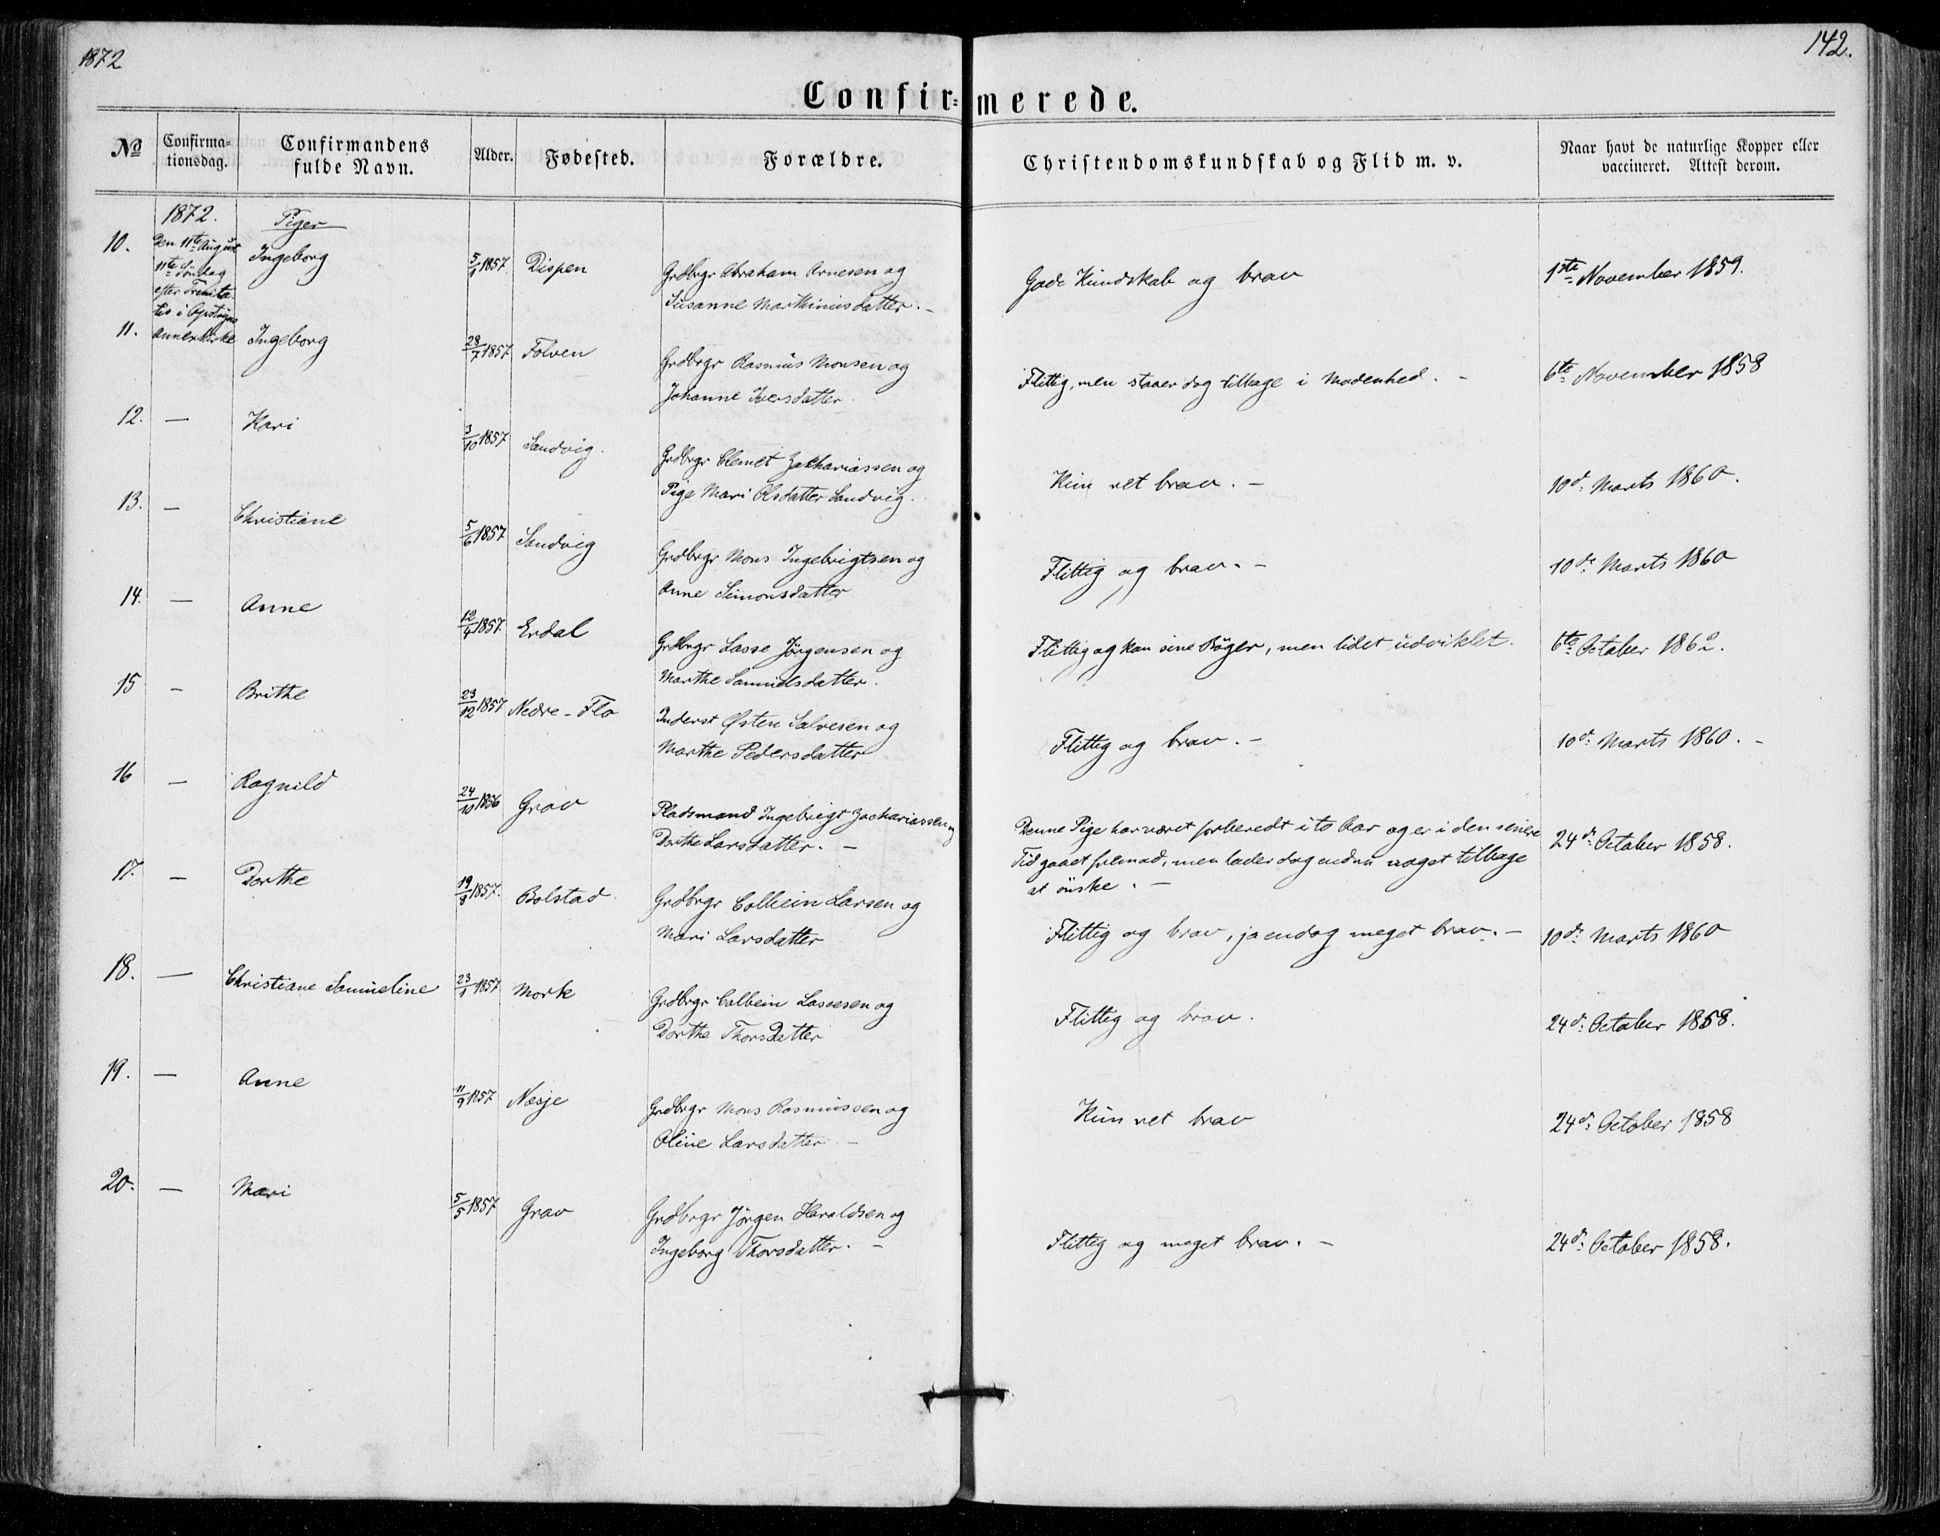 1872
142.
Confir=merede.
No
Confirma=
tionsdag.
Confirmandens
fulde Navn.
Alder.
Fødested.
Forældre.
Christendomskundskab og Flid m. v.
Naar havt de naturlige Kopper eller
vaccineret. Attest derom.
1872.
Piger
10.
Den 11te August
11te Søndag
efter
i
Annexkirke
Ingeborg
5/1 1857.
Dispen
Grdbrgr Abraham Arnesen og
Susanne Marthiniusdatter. -
Gode Kundskab og brav
1ste November 1859.
11.
Ingeborg
28/7 1857
Folven
Grdbrgr Rasmus Monsen og
Johanne Iversdatter.
Flittig, men staaer dog tilbage i Modenhed. -
6te November 1858
12. —
Kari
3/10 1857
Sandvig.
Grdbrgr Clemet Zachariassen og
Pige Mari Olsdatter Sandvig.
Kun ret brav. -
10d. Marts 1860.
13. —
Christiane
5/6 1857
Sandvig
Grdbrgr Mons Ingebrigtsen og
Anne Simonsdatter
Flittig og brav. -
10de Marts 1860
14. —
Anne
12/4 1857
Erdal
Grdbrgr Lasse Jørgensen og
Marthe Samuelsdatter.
Flittig og kan sine Bøger, men lidet udviklet.
6te October 1862.
15 -
Brithe
23/12 1857
Nedre-Flo
Inderst Østen Salvesen og
Marthe Pedersdatter
Flittig og brav. -
10d. Marts 1860. -
16 —
Ragnild
24/10 1856
Grov
Pladsmand Ingebrigt Zachariassen og
Dorthe Larsdatter. -
Denne Pige har været forberedt i to Aar og er i den senere
Tid gaaet fremad, men lader dog endnu noget tilbage
at ønske. -
24d. October 1858.
17. -
Dorthe
19/8 1857.
Bolstad
Grdbrgr Colbein Larsen og
Mari Larsdatter
Flittig og brav, ja endog meget brav. -
10d. Marts 1860
18. —
Christiane Samueline
23/1 1857
Mork
Grdbrgr Colbein Lassesen og
Dorthe Thorsdatter
Flittig og brav.
24d. October 1858.
19. —
Anne
11/9 1857
Nesje
Grdbrgr Mons Rasmussen og
Oline Larsdatter. -
Kun ret brav
24d. October 1858
20. —
Mari
5/5 1857
Grov
Grdbrgr Jørgen Haraldsen og
Ingeborg Thorsdatter. -
Flittig og meget brav. -
24d. October 1858.